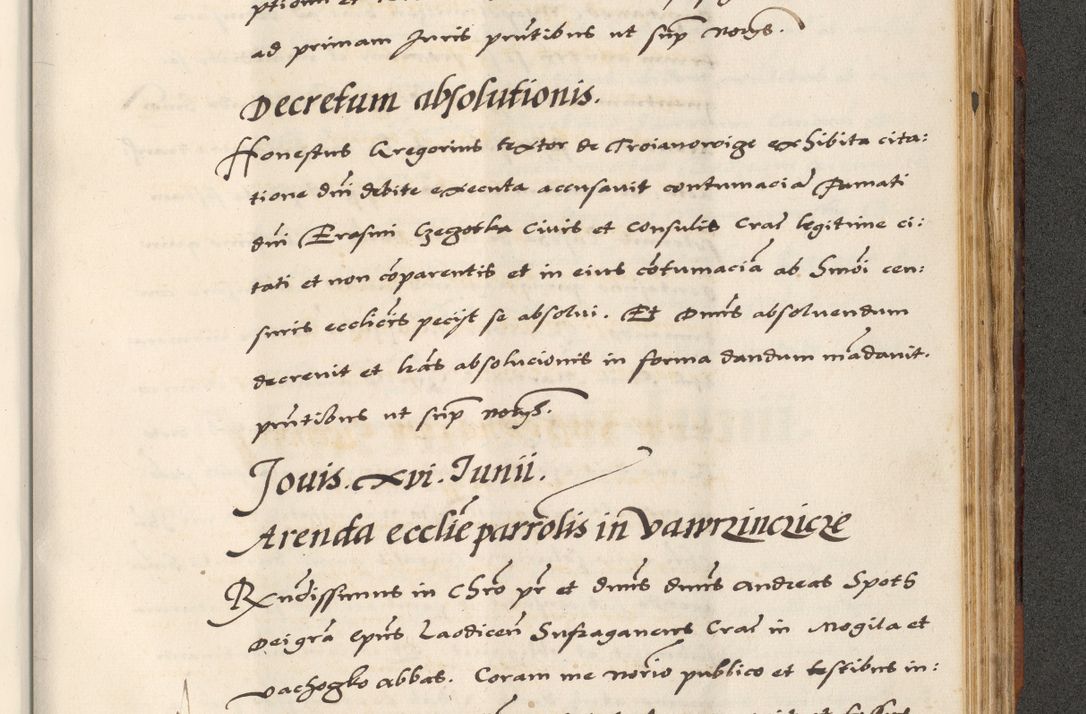 ad primam Juris pn̄tibus ut sup̄ notijs.
Decretum absolutionis.
Honestus Gregorius textor de Troianowige exhibita cita:
tione dn̄i debite executa accusavit contumaciā Famati
dn̄i Erasmi Czeczotka Civis et Consulis Crac̄ legitime ci:
tati et non cōparentis et in eius cōtumaciā ab Smōi cen:
suris ecclīcis pecijt se absolui. Et Dm̄s absoluendum
decrevit et lr̄as absolucionis in forma dandum mādavit.
pn̄tibus ut sup̄ notijs.
Jouis. xvi. Junii.
Arenda ecclīe parrōlis in Vawrzinczicze
Rxn̄dissimus in Chr̄o pr̄ et dm̄s dm̄s Andreas Spots
Dei gr̄a Ep̄us Laodiceñ Sufraganeus Crac̄ in Mogila et
vachogko abbas. Coram me notr̄io publico et testibus in: